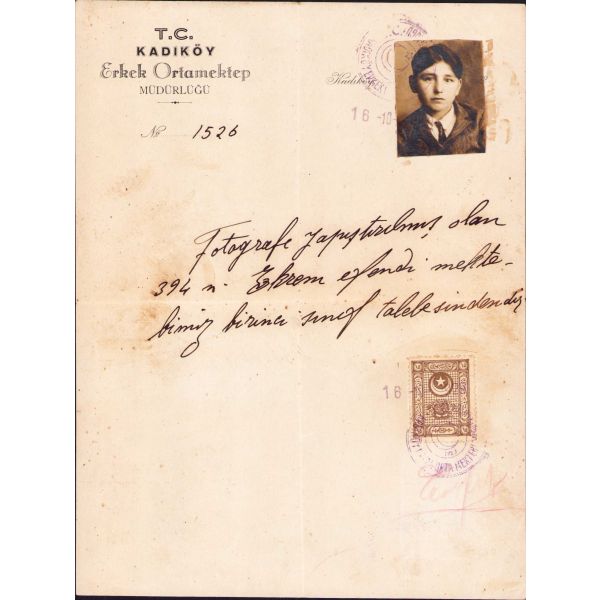 T.C.
KADIKÖY
Erkek Ortamektep
MÜDÜRLÜĞÜ
№ 1526
Kadıköy
16-10-
Fotografe yapıştırılmış olan
394 n. Ekrem efendi mekte-
bimiz birinci sınıf talebesindendir
16-